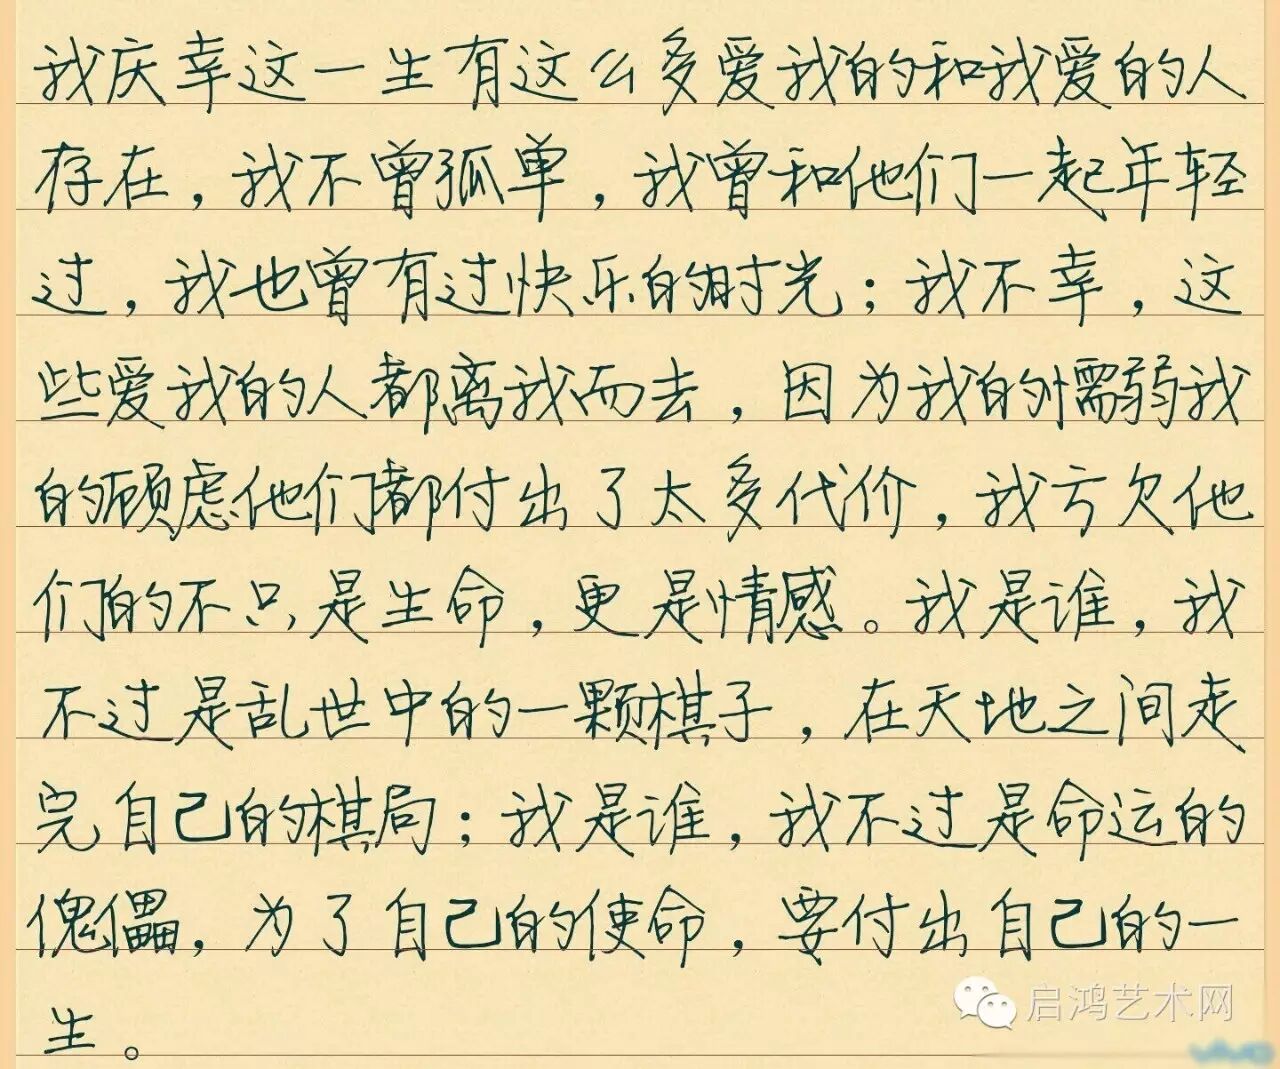 我庆幸这一生有这么多爱我的和我爱的人
存在，我不曾孤单，我曾和他们一起年轻
过，我也曾有过快乐的时光；我不幸，这
些爱我的人都离我而去，因为我的懦弱我
的顾虑他们都付出了太多代价，我亏欠他
们的不只是生命，更是情感。我是谁，我
不过是乱世中的一颗棋子，在天地之间走
完自己的棋局；我是谁，我不过是命运的
傀儡，为了自己的使命，要付出自己的一
生。
启鸿艺术网
vivo